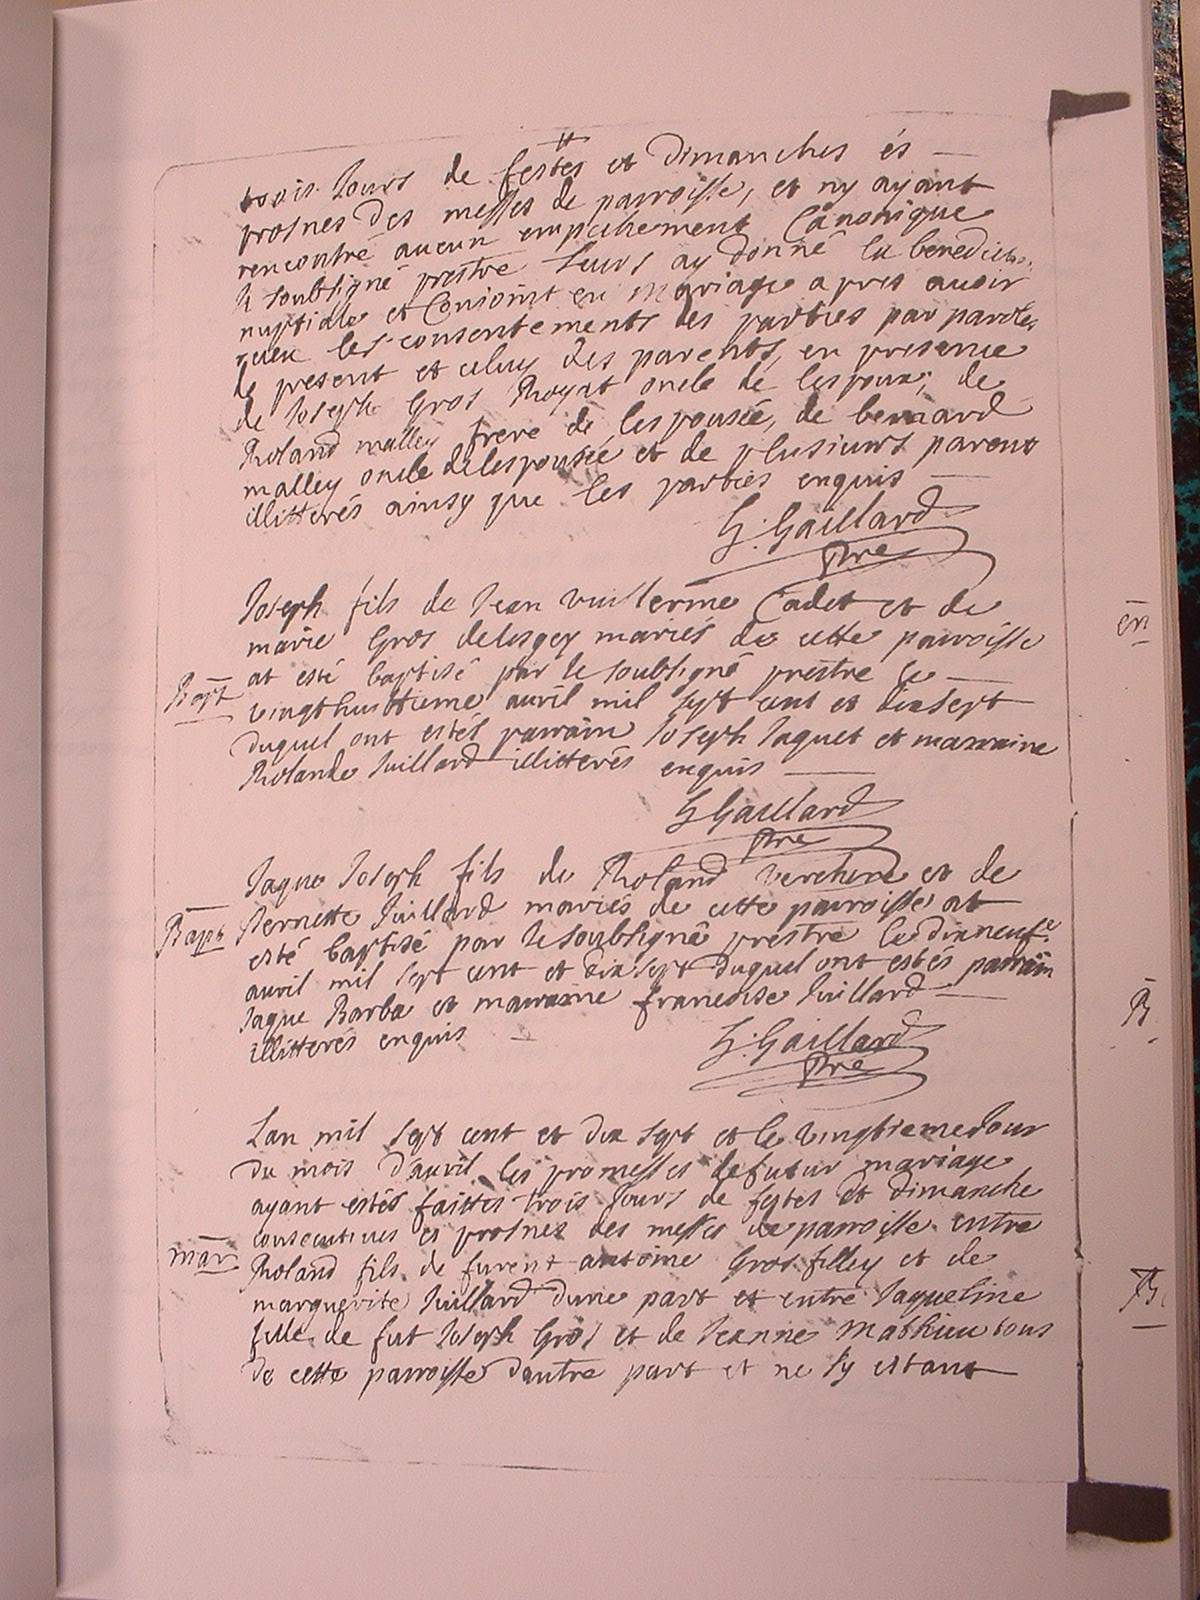 trois Jours de festes et dimanches és
prosnes des messes de parroisse, et ny ayant
rencontré aucun empechement Canonique
le soubsigné prestre leurs ay donné la benedictio.
nuptiale et Conjoint en mariage apres avoir
receu les consentements des parties par paroles
de present et celuy des parents, en presence
de Joseph Gros Royat oncle de lespoux, de
Roland malley frere de lespousée, de bernard
malley oncle de lespousée et de plusieurs parents
illitterés ainsy que les parties enquis
G. Gaillard
Pre
Joseph fils de Jean vuillerme Cadet et de
marie Gros mariés de cette parroisse
at esté baptisé par le soubsigné prestre le
vingthuittieme avril mil sept cent et dixsept
duquel ont estés parrain Joseph Jaquet et marraine
Rolande Juillard illitterés enquis
Bapt
G Gaillard
Pre
Jaque Joseph fils de Roland verchere et de
Pernette Juillard mariés de cette parroisse at
esté baptisé par le soubsigné prestre le dixneufe
avril mil sept cent et dixsept duquel ont estés parrain
Jaque Barba et marraine francoise Juillard
illitterés enquis
Bapt
G. Gaillard
Pre
Lan mil sept cent et dix sept et le vingtieme Jour
du mois d'avril les promesses de futur mariage
ayant estés faittes trois Jours de festes et dimanche
consecutives és prosnes des messes de parroisse entre
Roland fils de furent antoine Gros filley et de
marguerite Juillard dune part et entre Jaqueline
fille de fut Joseph Gros et de Jeanne Mathieu tous
de cette parroisse dautre part et ne sy estant
mar
en
B
B